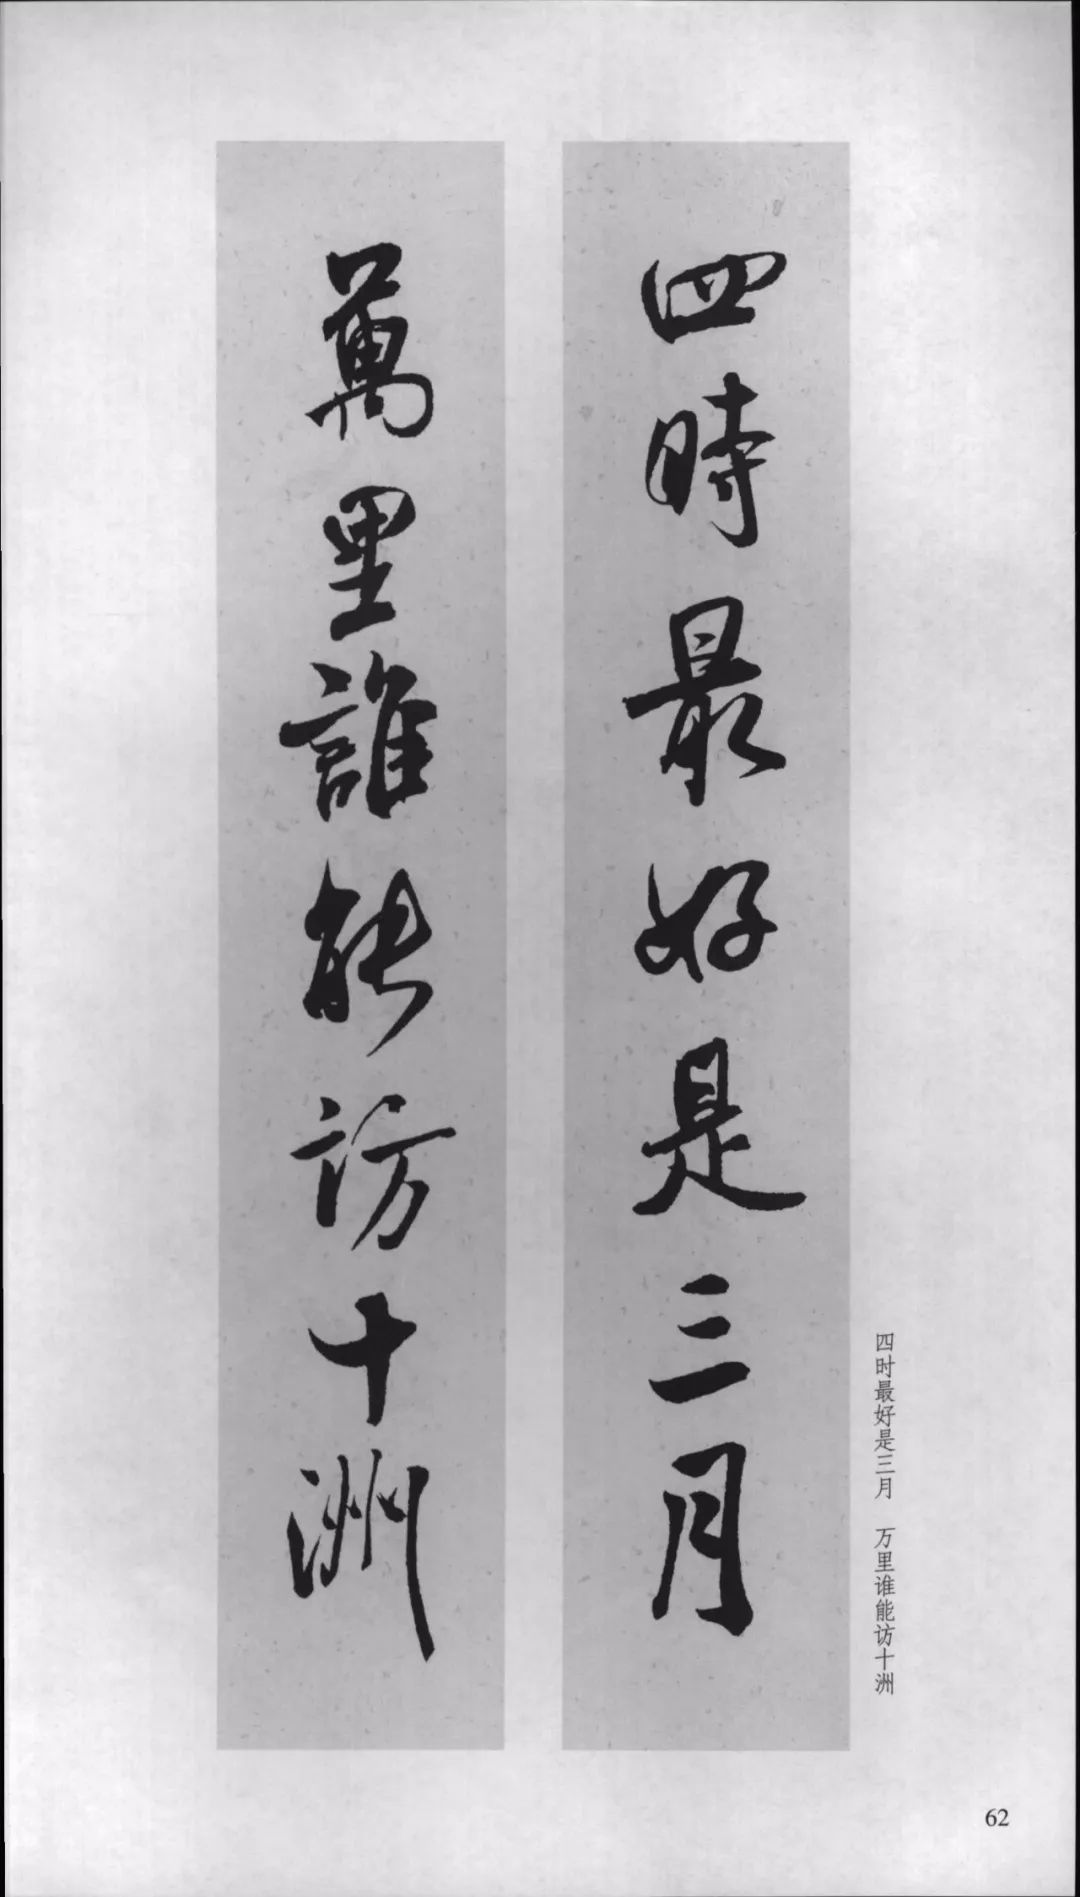 四時最好是三月
萬里誰能訪十洲
四时最好是三月 万里谁能访十洲
62